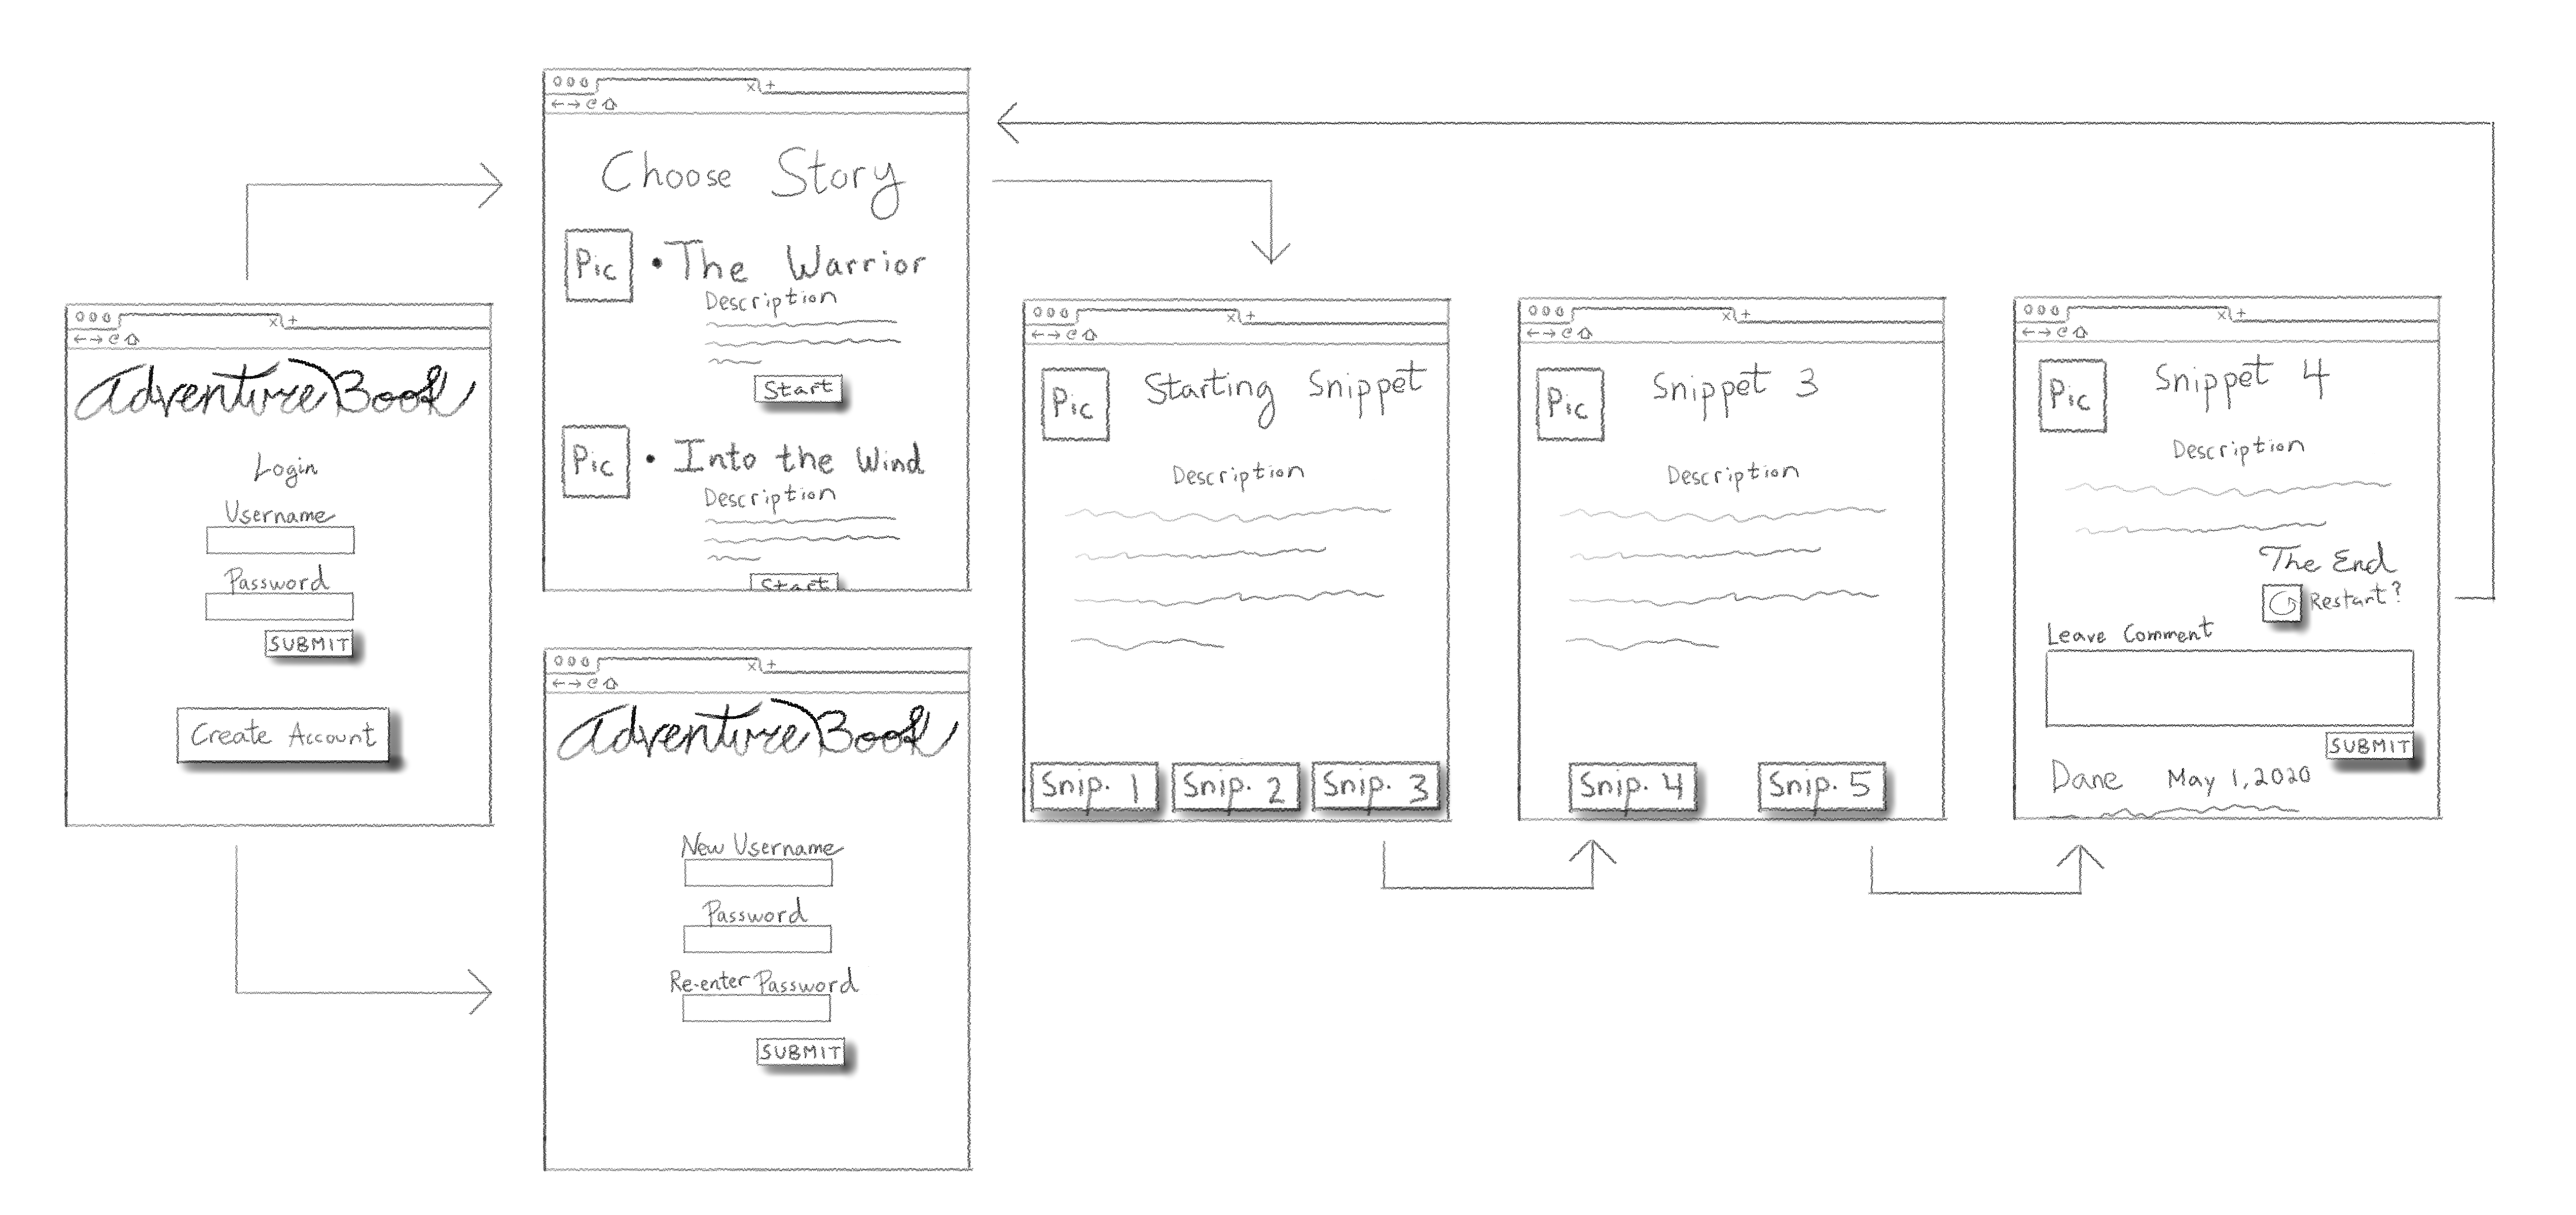 Adventure Book
Login
Username
Password
SUBMIT
Create Account
Choose Story
Pic
• The Warrior
Description
Start
Pic
• Into the Wind
Description
Start
Adventure Book
New Username
Password
Re-enter Password
SUBMIT
Pic
Starting Snippet
Description
Snip. 1
Snip. 2
Snip. 3
Pic
Snippet 3
Description
Snip. 4
Snip. 5
Pic
Snippet 4
Description
The End
Restart?
Leave Comment
SUBMIT
Dane May 1, 2020